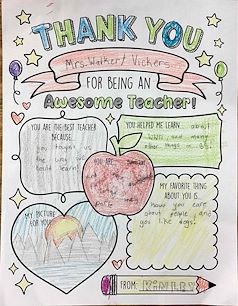 THANK YOU
Mrs. Walker/ Vickers
FOR BEING AN
Awesome Teacher!
YOU ARE THE BEST TEACHER
BECAUSE
taught us
the way we
could learn!
YOU HELPED ME LEARN about
WWII and many
other things in
YOU ARE
MY FAVORITE THING
ABOUT YOU IS
how you care
about people and
you like dogs!
MY PICTURE
FOR YOU
FROM: